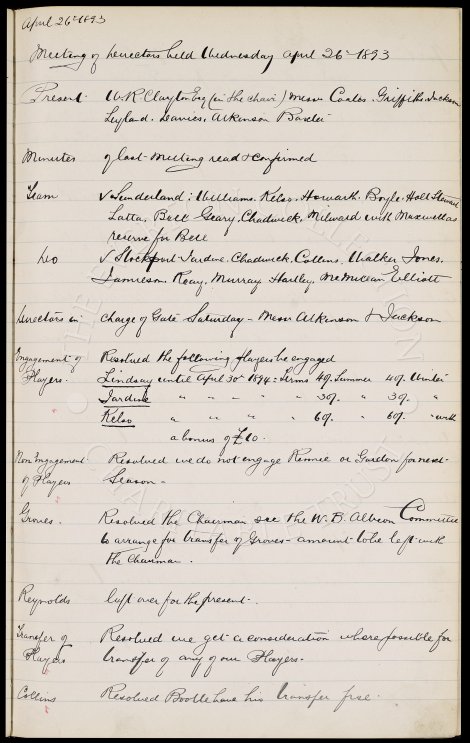 April 26th 1893
Meeting of Directors held Wednesday April 26th 1893
Present W.R. Clayton Esq (in the chair) Messrs Coates, Griffiths, Jackson
Leyland, Davies, Atkinson Baxter
Minutes of last Meeting read & confirmed
Team v Sunderland: Williams, Kelso, Howarth, Boyle, Holt Stewart
Latta, Bell Geary, Chadwick, Milward with Maxwell as
reserve for Bell
Do v Stockport Jardine, Chadwick, Collins, Walker Jones,
Jamieson Reay, Murray Hartley, McMillan Elliott
Directors in charge of Gate Saturday - Messrs Atkinson & Jackson
Engagement of Players. Resolved the following players be engaged
Lindsay until April 30th 1894: Terms 40/. Summer 40/. Winter
Jardine " " " " " 30/. " 30/. "
Kelso " " " " " 60/. " 60/. " with
a bonus of £10.
Non Engagement of Players Resolved we do not engage Rennie or Gordon for next
Season -
Groves. Resolved the Chairman see the W. B. Albion Committee
to arrange for transfer of Groves - amount to be left with
the Chairman.
Reynolds left over for the present.
Transfer of Players Resolved we get a consideration where possible for
transfer of any of our Players.
Collins Resolved Bootle have his transfer free.